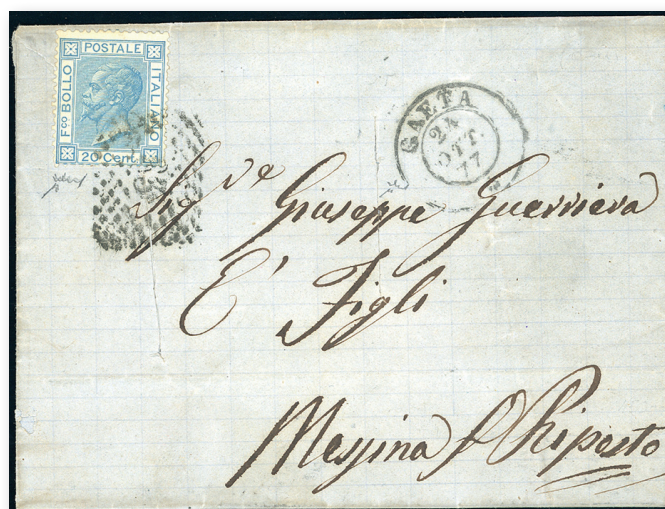 POSTALE
Fco BOLLO
ITALIANO
20 Cent
GAETA
24
OTT.
77
Sigre Giuseppe Guerriera
E' Figli
Messina p Riposto